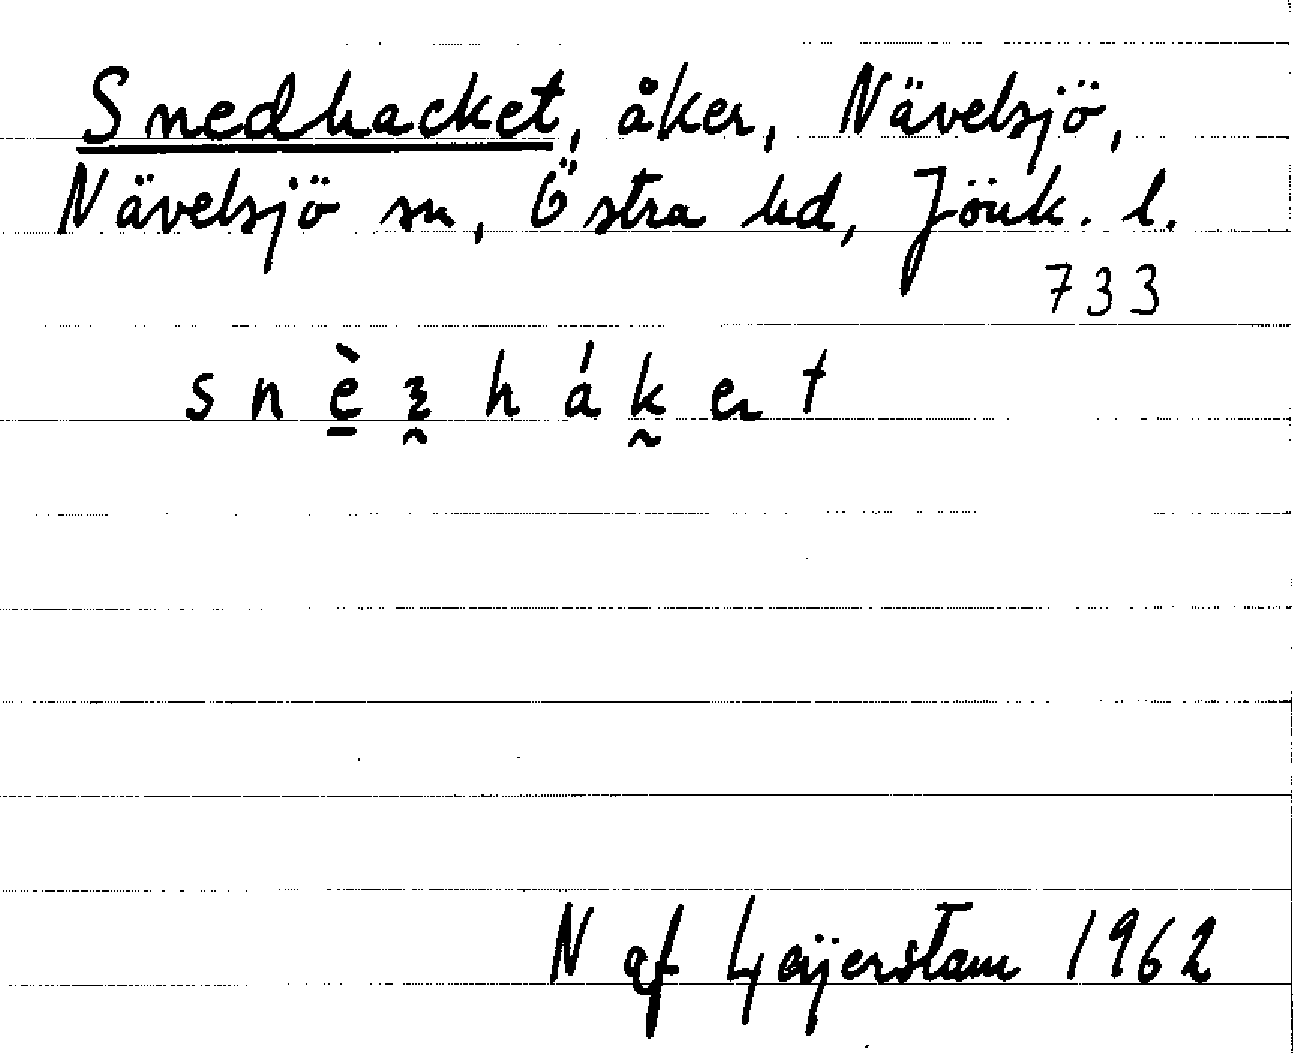 Snedhacket, åker, Nävelsjö,
Nävelsjö sn, Östra hd, Jönk. l.
733
N af Geijerstam 1962